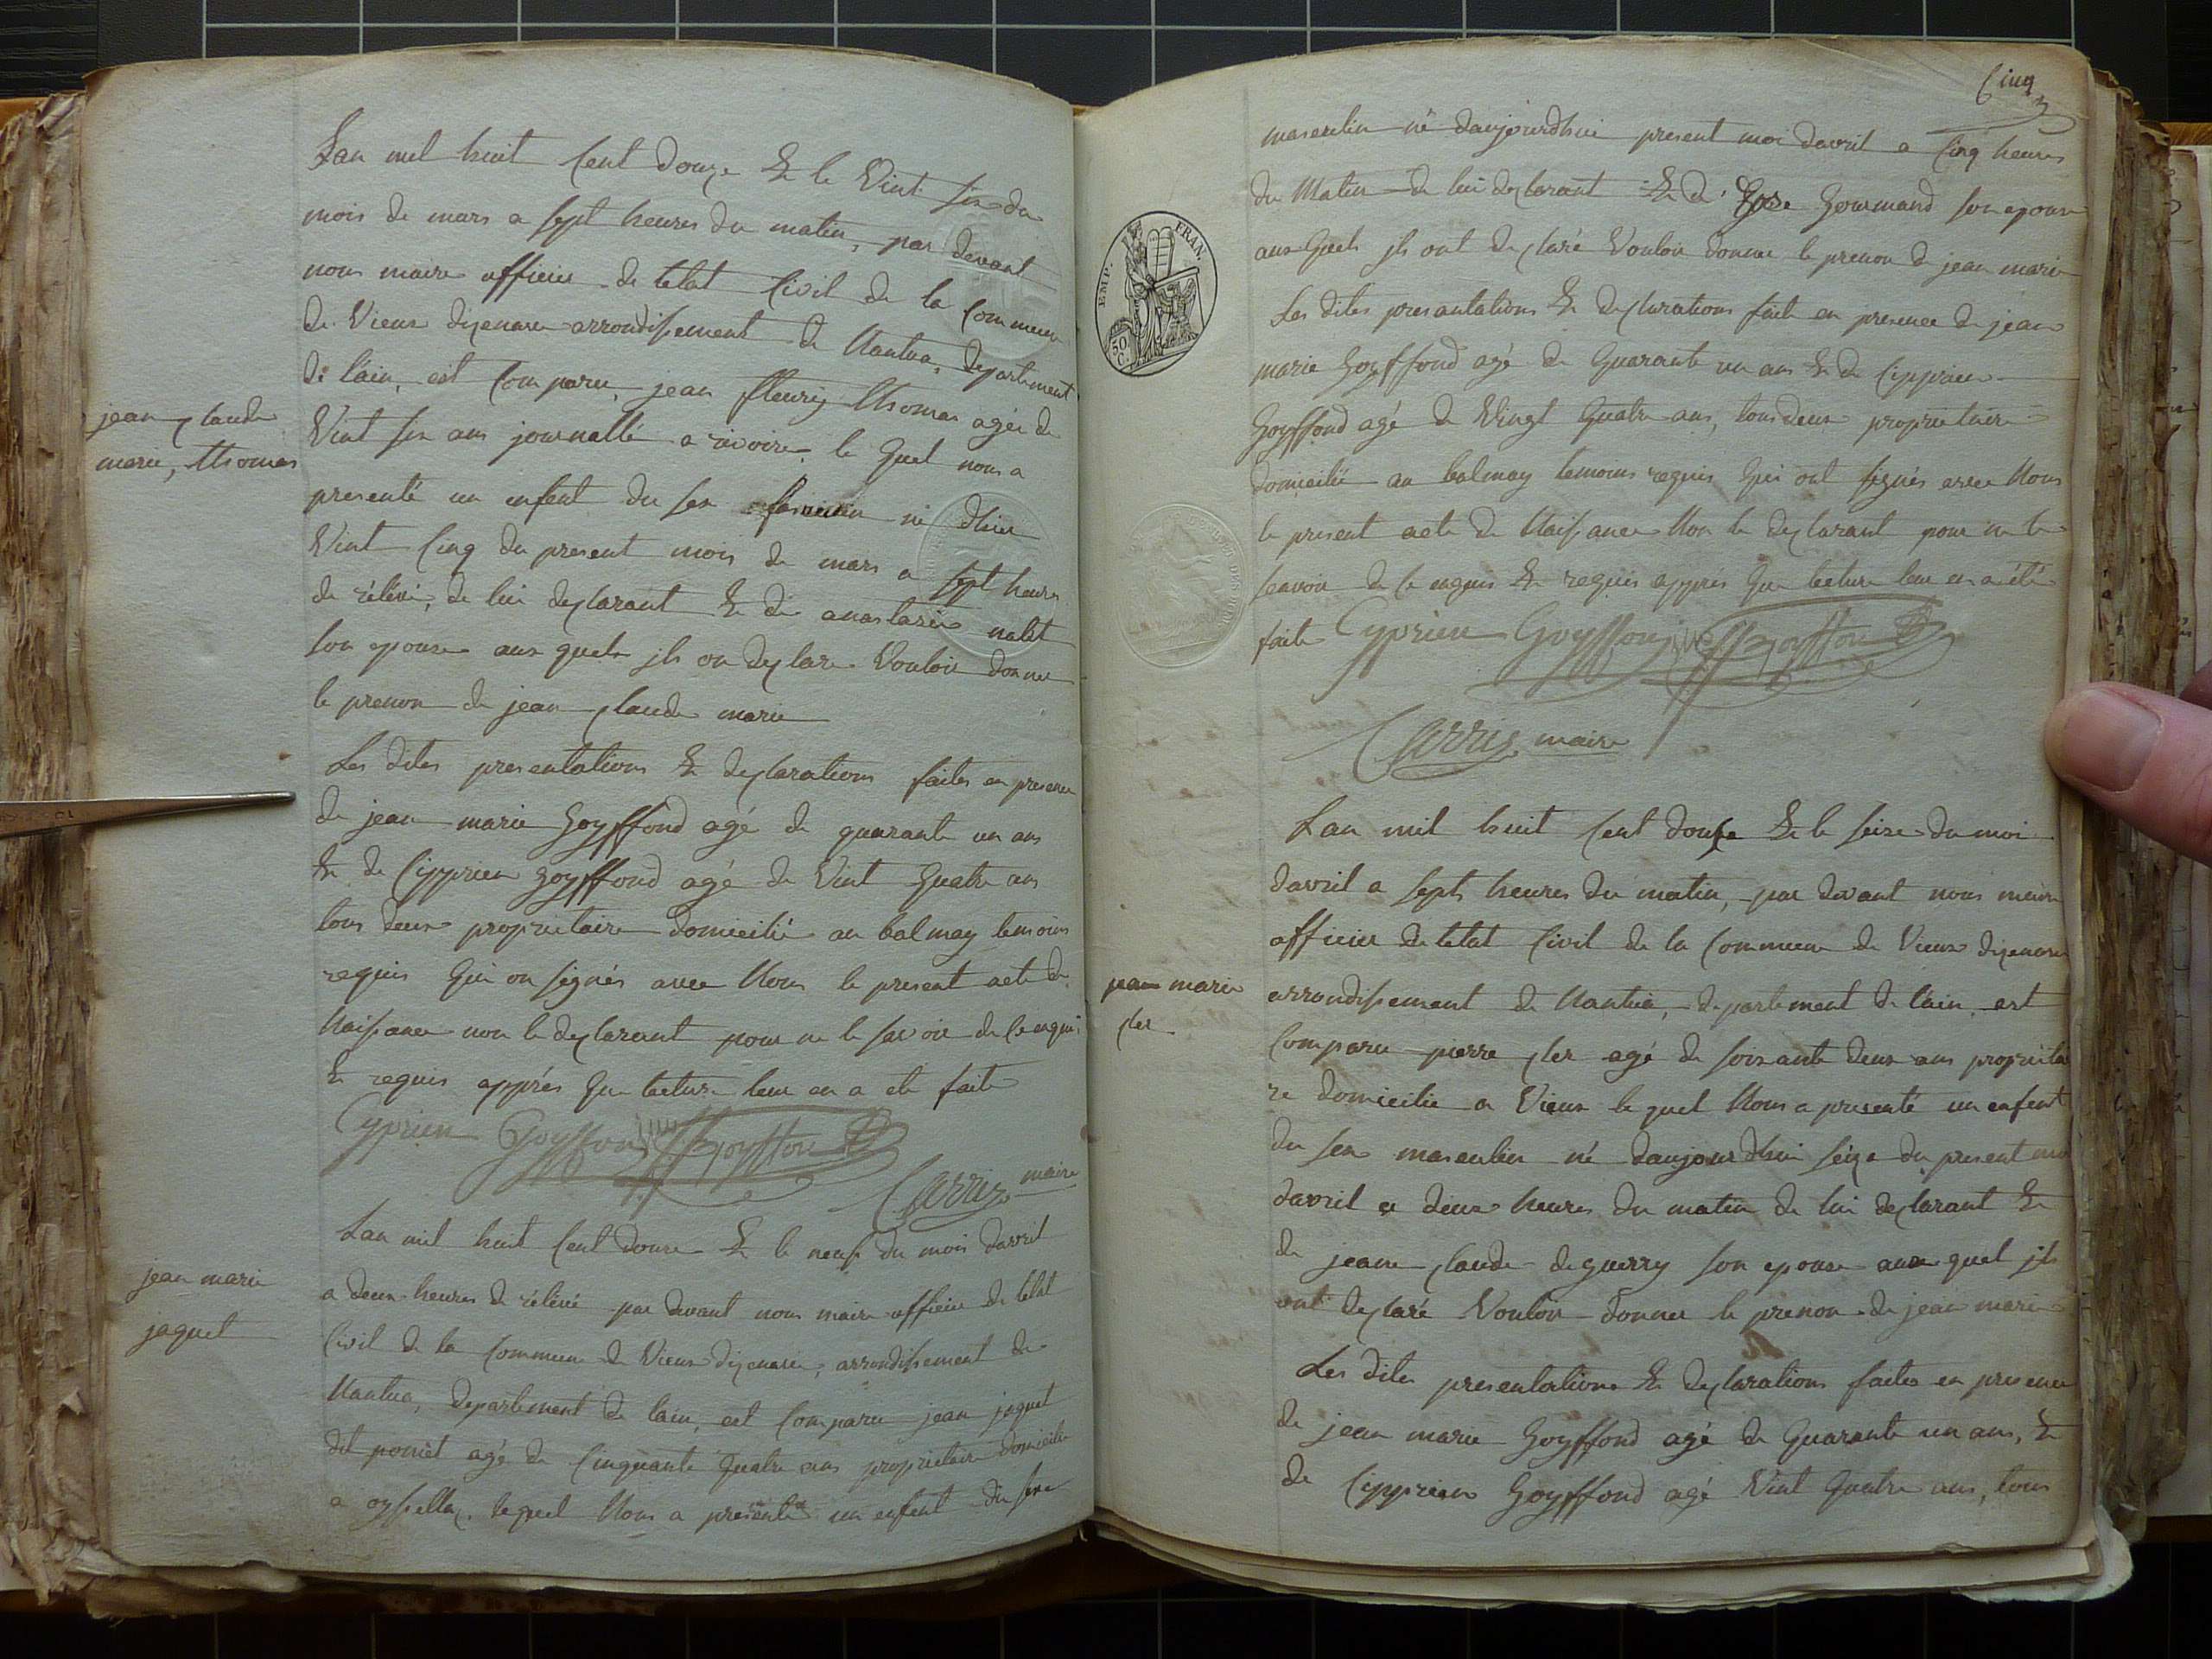 jean Claude
marie, thomas
jean marie
jaquet
Lan mil huit Cent douze & le Vint six du
mois de mars a sept heures du matin, par devant
nous maire officier de letat Civil de la Commune
de Vieux dizenave arrondissement de Nantua, departement
de lain, est Comparu, jean fleury thomas agée de
Vint six ans journallé a le Quel nous a
presenté un enfent du sex ne dhier
Vint Cinq du present mois de mars a sept heures
de rélevé, de lui declarant & de anastasie nalet
son epouse aux quels ils on declare Vouloir donner
le prenon de jean Claude marie
Les dites presentations & declarations faites en presence
de jean marie Goyffond agé de quarante un ans
& de Cipprien goyffond agé de Vint Quatre ans
tous deux proprietaire domicilié au balmay temoins
requis Qui on signés avec Nous le present acte de
Naissance non le declarant pour ne le savoir de Ce enquis
& requis apprés Que lecture leur en a ete faite
Cyprien Goyffon Goyffon
Carris maire
Lan mil huit Cent douze & le neuf du mois davril
a deux heures de rélévé par devant nous maire officier de letat
Civil de la Commune de Vieux dizenave, arrondissement de
Nantua, departement de lain, est Comparu jean jaquet
dit agé de Cinquante Quatre ans proprietaire domicilié
a oyssella, lequel Nous a presenté un enfent du sexe
Cinq
EMP. FRAN.
50 C.
masculin né daujourdhui present moi davril a Cinq heures
du Matin de lui declarant & de Gourmand son epouse
aux Quels ils ont declaré Vouloir donner le prenon de jean marie
Les dites presantations & declarations faite en presence de jean
marie Goyffond agé de Quarante un ans & de Cipprien
Goyffond agé de Vingt Quatre ans, tous deux proprietaire
domicilié au balmay temoins requis Qui ont signés avec Nous
le present acte de Naissance Non le declarant pour ne le
scavoir de Ce enquis & requis apprés Que lecture leur en a été
faite Cyprien Goyffon Goyffon
Carris maire
jean marie
Cler
Lan mil huit Cent douze & le seize du moi
davril a sept heures du matin, par devant nous maire
officier de letat Civil de la Commune de Vieux dizenave
arrondissement de Nantua, departement de lain, est
Comparu pierre Cler agé de soixante deux ans proprietai
re domicilié a Vieux le quel Nous a presenté un enfent
du sex masculin né daujourdhui séize du present moi
davril a deux heures du matin de lui declarant &
de jeane Claude deguerry son epouse aux quel ils
ont declaré Vouloir donner le prenon de jean marie
Les dites presentations & declarations faites en presence
de jean marie Goyffond agé de Quarante un ans, &
de Cipprien Goyffond agé Vint Quatre ans, tous